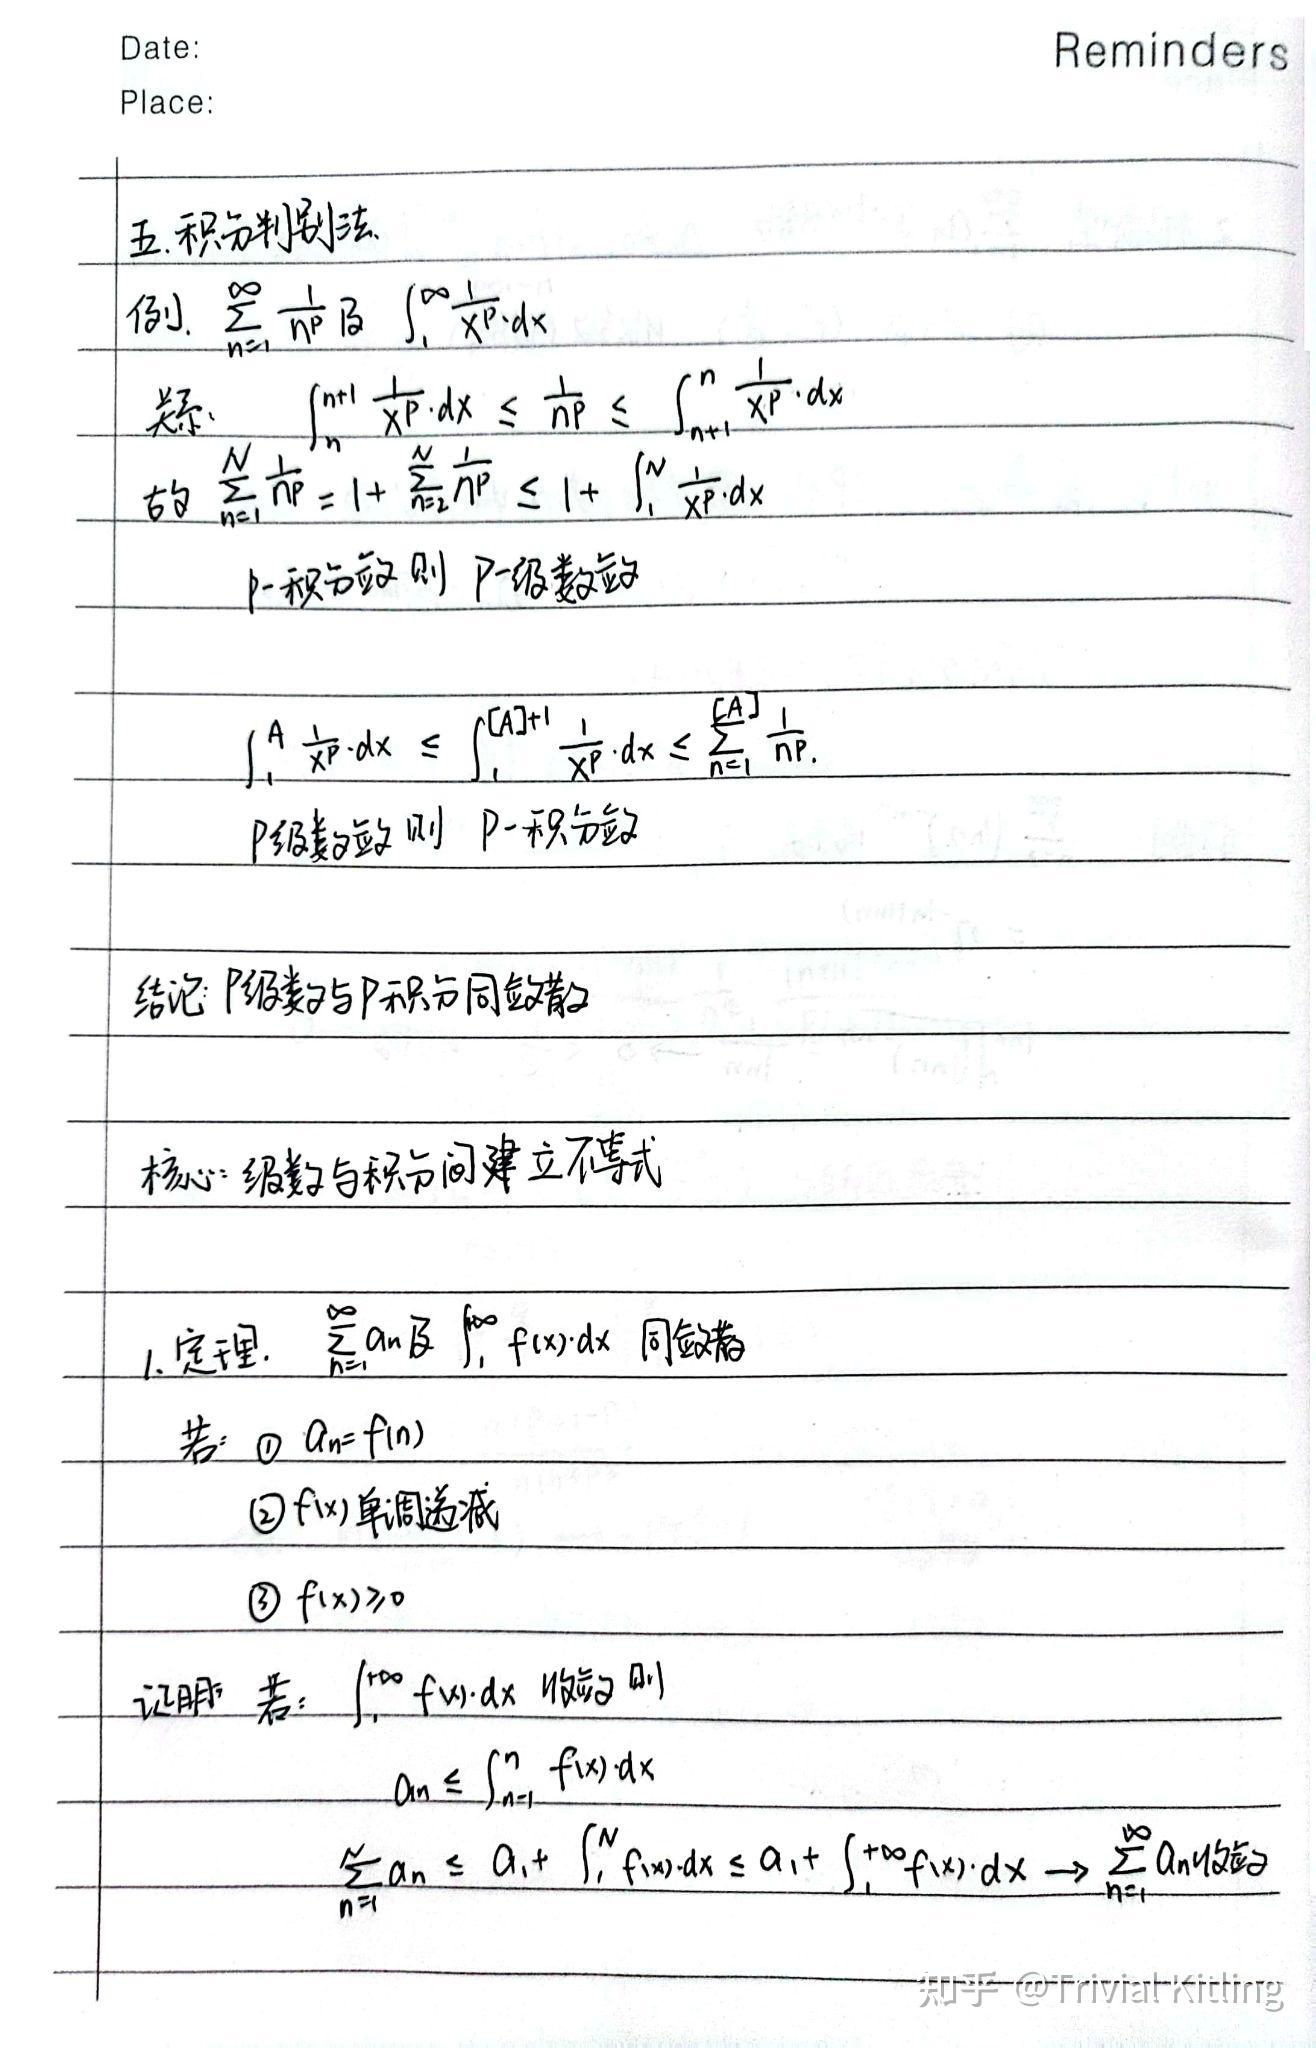 Date:
Reminders
Place:
五.积分判别法.
例. $\sum_{n=1}^{\infty} \frac{1}{n^p}$ 及 $\int_1^{\infty} \frac{1}{x^p} \cdot dx$
关系: $\int_n^{n+1} \frac{1}{x^p} \cdot dx \le \frac{1}{n^p} \le \int_{n+1}^{n} \frac{1}{x^p} \cdot dx$
故 $\sum_{n=1}^{N} \frac{1}{n^p} = 1 + \sum_{n=2}^{N} \frac{1}{n^p} \le 1 + \int_1^N \frac{1}{x^p} \cdot dx$
P-积分敛则 P-级数敛
$\int_1^A \frac{1}{x^p} \cdot dx \le \int_1^{[A]+1} \frac{1}{x^p} \cdot dx \le \sum_{n=1}^{[A]} \frac{1}{n^p}.$
P级数敛则 P-积分敛
结论: P级数与P积分同敛散
核心: 级数与积分间建立不等式
1. 定理. $\sum_{n=1}^{\infty} a_n$ 及 $\int_1^{+\infty} f(x) \cdot dx$ 同敛散
若: ① $a_n = f(n)$
② f(x)单调递减
③ $f(x) \ge 0$
证明: 若: $\int_1^{+\infty} f(x) \cdot dx$ 收敛则
$a_n \le \int_{n=1}^{n} f(x) \cdot dx$
$\sum_{n=1}^{N} a_n \le a_1 + \int_1^N f(x) \cdot dx \le a_1 + \int_1^{+\infty} f(x) \cdot dx \to \sum_{n=1}^{\infty} a_n$ 收敛
知乎 @Trivial Kitling